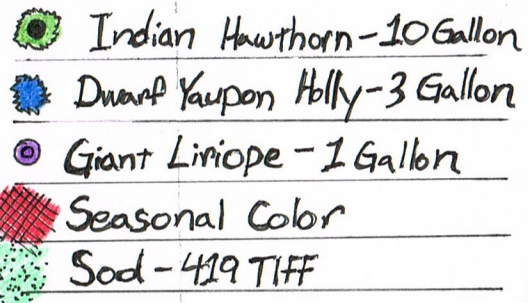 Indian Hawthorn - 10 Gallon
Dwarf Yaupon Holly - 3 Gallon
Giant Liriope - 1 Gallon
Seasonal Color
Sod - 419 Tiff